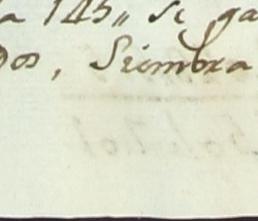 a 145,, Se ga
dos, Siembra